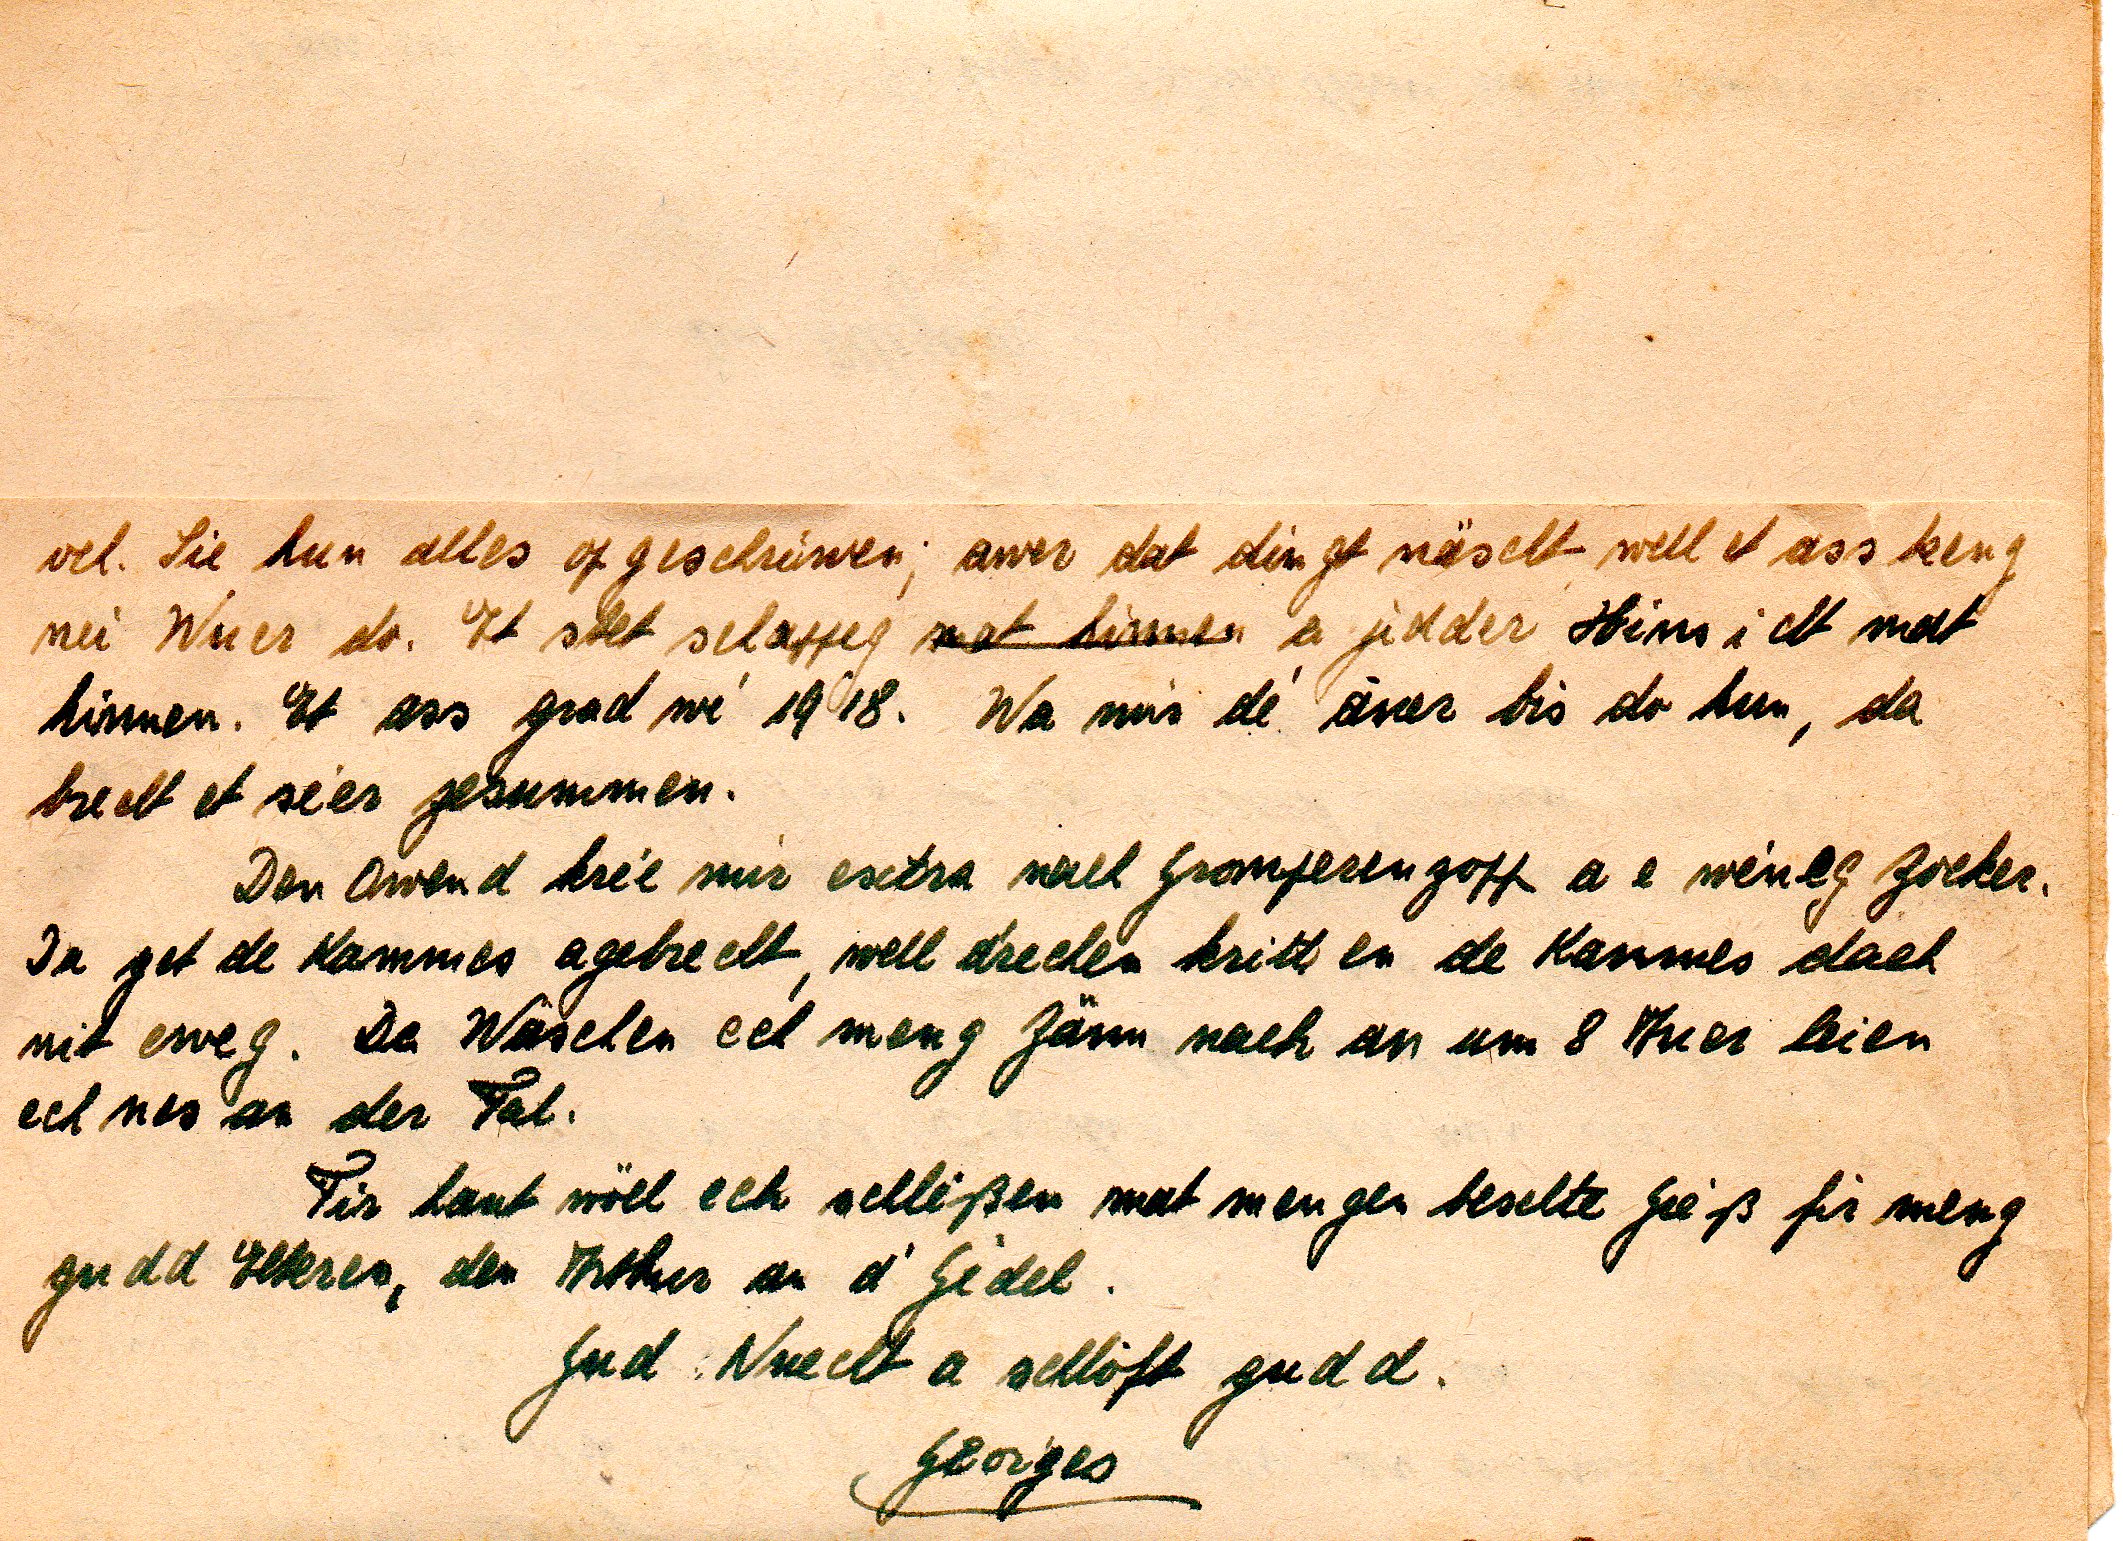 och. Sie hun alles opgeschriwen; awer dat dingt näscht, well et ass keng
nei Wuer do. Et stet schappeg mat hinnen a jidder Hinsicht mat
hinnen. Et ass grad wé 1918. Wa mir dé äner bis do hun, da
brecht et séier zesummen.
Den Owend kréie mir extra nach Gromperenzopp a e wéneg Zocker.
Da get de Kammes agebrecht, well drechen kritt en de Kammes dach
nit eweg. Da Wäschen ech meng Zänn nach an um 8 Auer leien
ech nes an der Fal.
Fir haut wöll ech schléßen mat mengen beschte Gréß fir meng
gudd Elteren, den Arthur an d'Gédel.
Gud Nuecht a schlöft gudd.
Georges